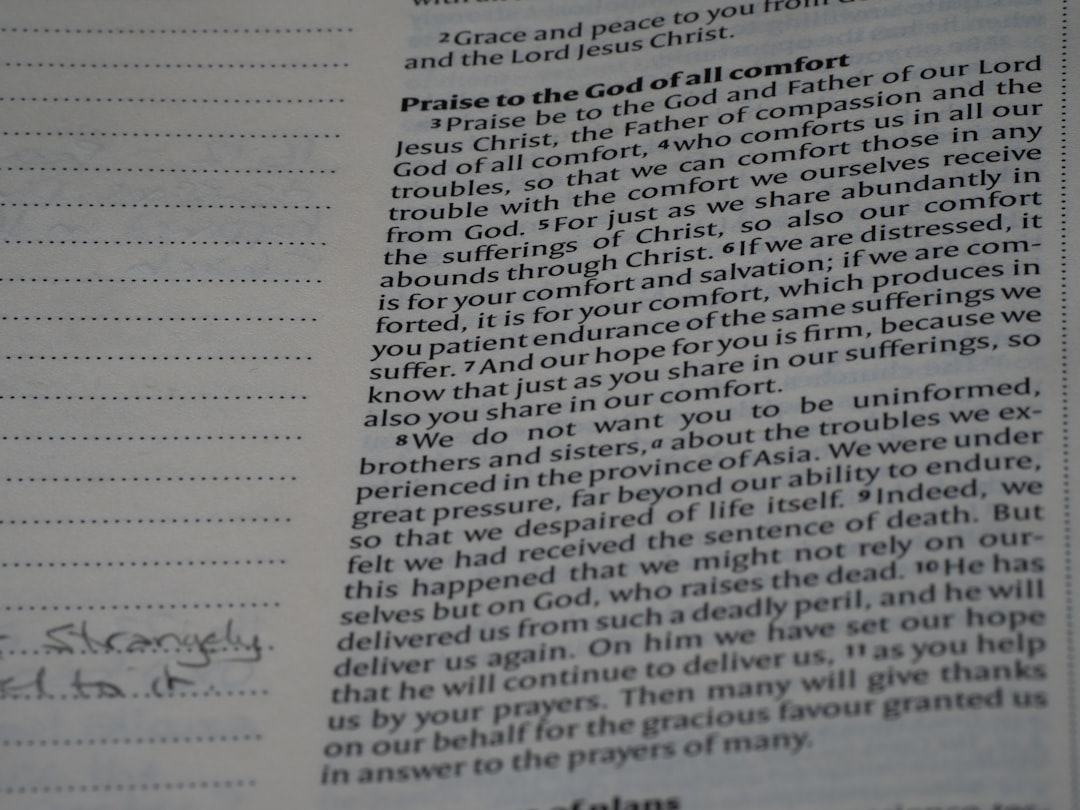 2 Grace and peace to you from
and the Lord Jesus Christ.
Praise to the God of all comfort
3 Praise be to the God and Father of our Lord
Jesus Christ, the Father of compassion and the
God of all comfort, 4 who comforts us in all our
troubles, so that we can comfort those in any
trouble with the comfort we ourselves receive
from God. 5 For just as we share abundantly in
the sufferings of Christ, so also our comfort
abounds through Christ. 6 If we are distressed, it
is for your comfort and salvation; if we are com-
forted, it is for your comfort, which produces in
you patient endurance of the same sufferings we
suffer. 7 And our hope for you is firm, because we
know that just as you share in our sufferings, so
also you share in our comfort.
8 We do not want you to be uninformed,
brothers and sisters, a about the troubles we ex-
perienced in the province of Asia. We were under
great pressure, far beyond our ability to endure,
so that we despaired of life itself. 9 Indeed, we
felt we had received the sentence of death. But
this happened that we might not rely on our-
selves but on God, who raises the dead. 10 He has
delivered us from such a deadly peril, and he will
deliver us again. On him we have set our hope
that he will continue to deliver us, 11 as you help
us by your prayers. Then many will give thanks
on our behalf for the gracious favour granted us
in answer to the prayers of many.
of plans
Strangely.
to it